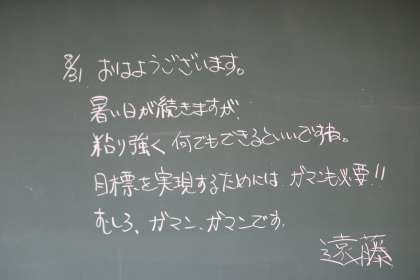 8/31 おはようございます。
暑い日が続きますが、
粘り強く何でもできるといいですね。
目標を実現するためには ガマンも必要!!
むしろ、ガマン、ガマンです。
遠藤